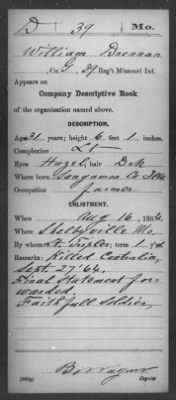 D 39 Mo.
William Brennan
, Co. G, 39 Reg't Missouri Inf.
Appears on
Company Descriptive Book
of the organization named above.
DESCRIPTION.
Age 31 years; height 6 feet 1 inches.
Complexion Lt
Eyes Hazel, hair Drk
Where born Sangamon Co Ills
Occupation farmer
ENLISTMENT.
When Aug 16, 1864.
Where Shelbyville Mo.
By whom Lt. ; term 1 y'rs
Remarks: Killed Centralia,
Sept. 27 '64.
Final Statement for-
warded.
Faithfull Soldier,
Copyist.